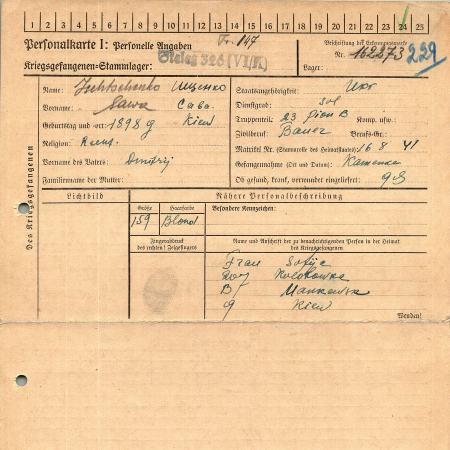 1 2 3 4 5 6 7 8 9 10 11 12 13 14 15 16 17 18 19 20 21 22 23 24 25
Personalkarte I: Personelle Angaben
Kriegsgefangenen=Stammlager: Stalag 326 (VI/K)
Fr. 147
Beschriftung der Erkennungsmarke
Nr. 162273 229
Lager:
Des Kriegsgefangenen
Name: Ischtschenko Ищенко
Vorname: Sawa Сава
Geburtstag und -ort: 1898 g Kiew
Religion:
Vorname des Vaters: Dmitrij
Familienname der Mutter:
Staatsangehörigkeit: Ukr
Dienstgrad: Sol
Truppenteil: 23 B Komp. usw.:
Zivilberuf: Bauer Berufs-Gr.:
Matrikel Nr. (Stammrolle des Heimatstaates) 16 8 41
Gefangennahme (Ort und Datum): Kamenka
Ob gesund, krank, verwundet eingeliefert:
Lichtbild
Nähere Personalbeschreibung
Größe Haarfarbe Besondere Kennzeichen:
159 Blond
Fingerabdruck
des rechten! Zeigefingers
Name und Anschrift der zu benachrichtigenden Person in der Heimat
des Kriegsgefangenen
Frau Sofije
B
g Kiew
Wenden!